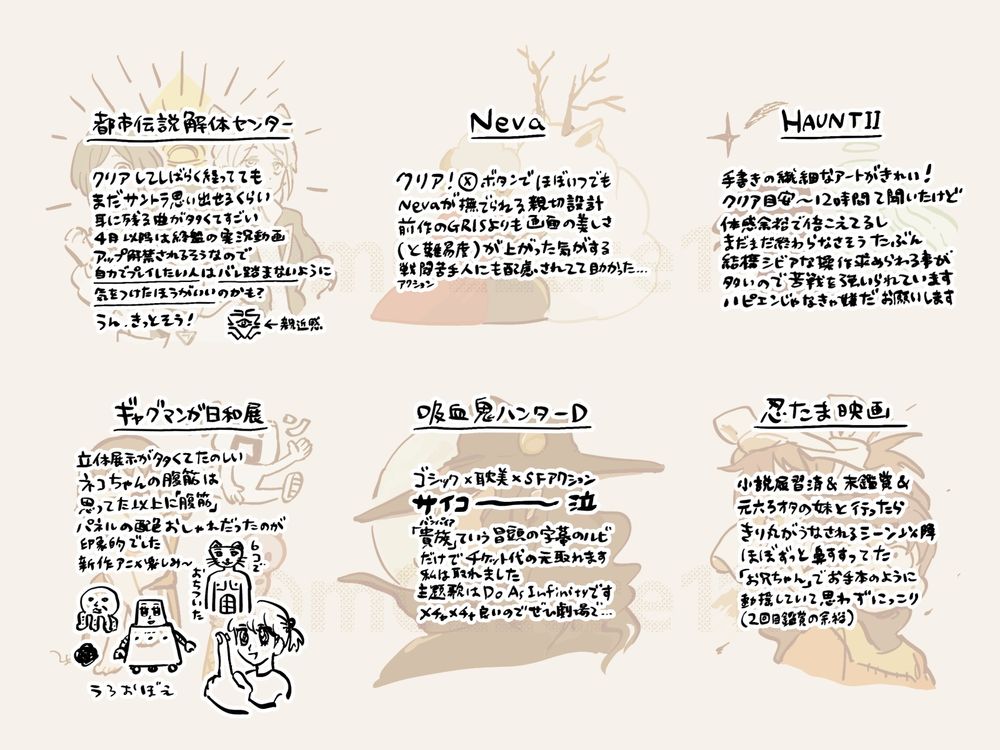 都市伝説解体センター
クリアしてしばらく経ってても
まだサントラ思い出せるくらい
耳に残る曲が多くてすごい
4月以降は終盤の実況動画
アップ解禁されるそうなので
自力でプレイしたい人はバレ踏まないように
気をつけたほうがいいのかも?
うん、きっとそう!
←親近感
Neva
クリア!ⓧボタンでほぼいつでも
Nevaが撫でられる親切設計
前作のGRISよりも画面の美しさ
(と難易度)が上がった気がする
戦闘苦手人にも配慮されてて助かった…
アクション
HAUNTII
手書きの繊細なアートがきれい!
クリア目安〜12時間て聞いたけど
体感余裕で倍こえてるし
まだまだ終わらなさそうたぶん
結構シビアな操作求められる事が
多いので苦戦を強いられています
ハピエンじゃなきゃ嫌だお願いします
ギャグマンガ日和展
立体展示が多くてたのしい
ネコちゃんの腹筋は
思ってた以上に「腹筋」
パネルの配色おしゃれだったのが
印象的でした
新作アニメ楽しみ〜
6つぶ
おこついた
うろおぼえ
吸血鬼ハンターD
ゴシック×耽美×SFアクション
サイコーーー 泣
バンパイア
「貴族」ていう冒頭の字幕のルビ
だけでチケット代の元取れます
私は取れました
主題歌はDo As Infinityです
メチャメチャ良いのでぜひ劇場で…
忍たま映画
小説履習済&未鑑賞&
元六ろオタの妹と行ったら
きり丸がうなされるシーン以降
ほぼずっと鼻すすってた
「お兄ちゃん」でお手本のように
動揺していて思わずにっこり
(2回目鑑賞の余裕)